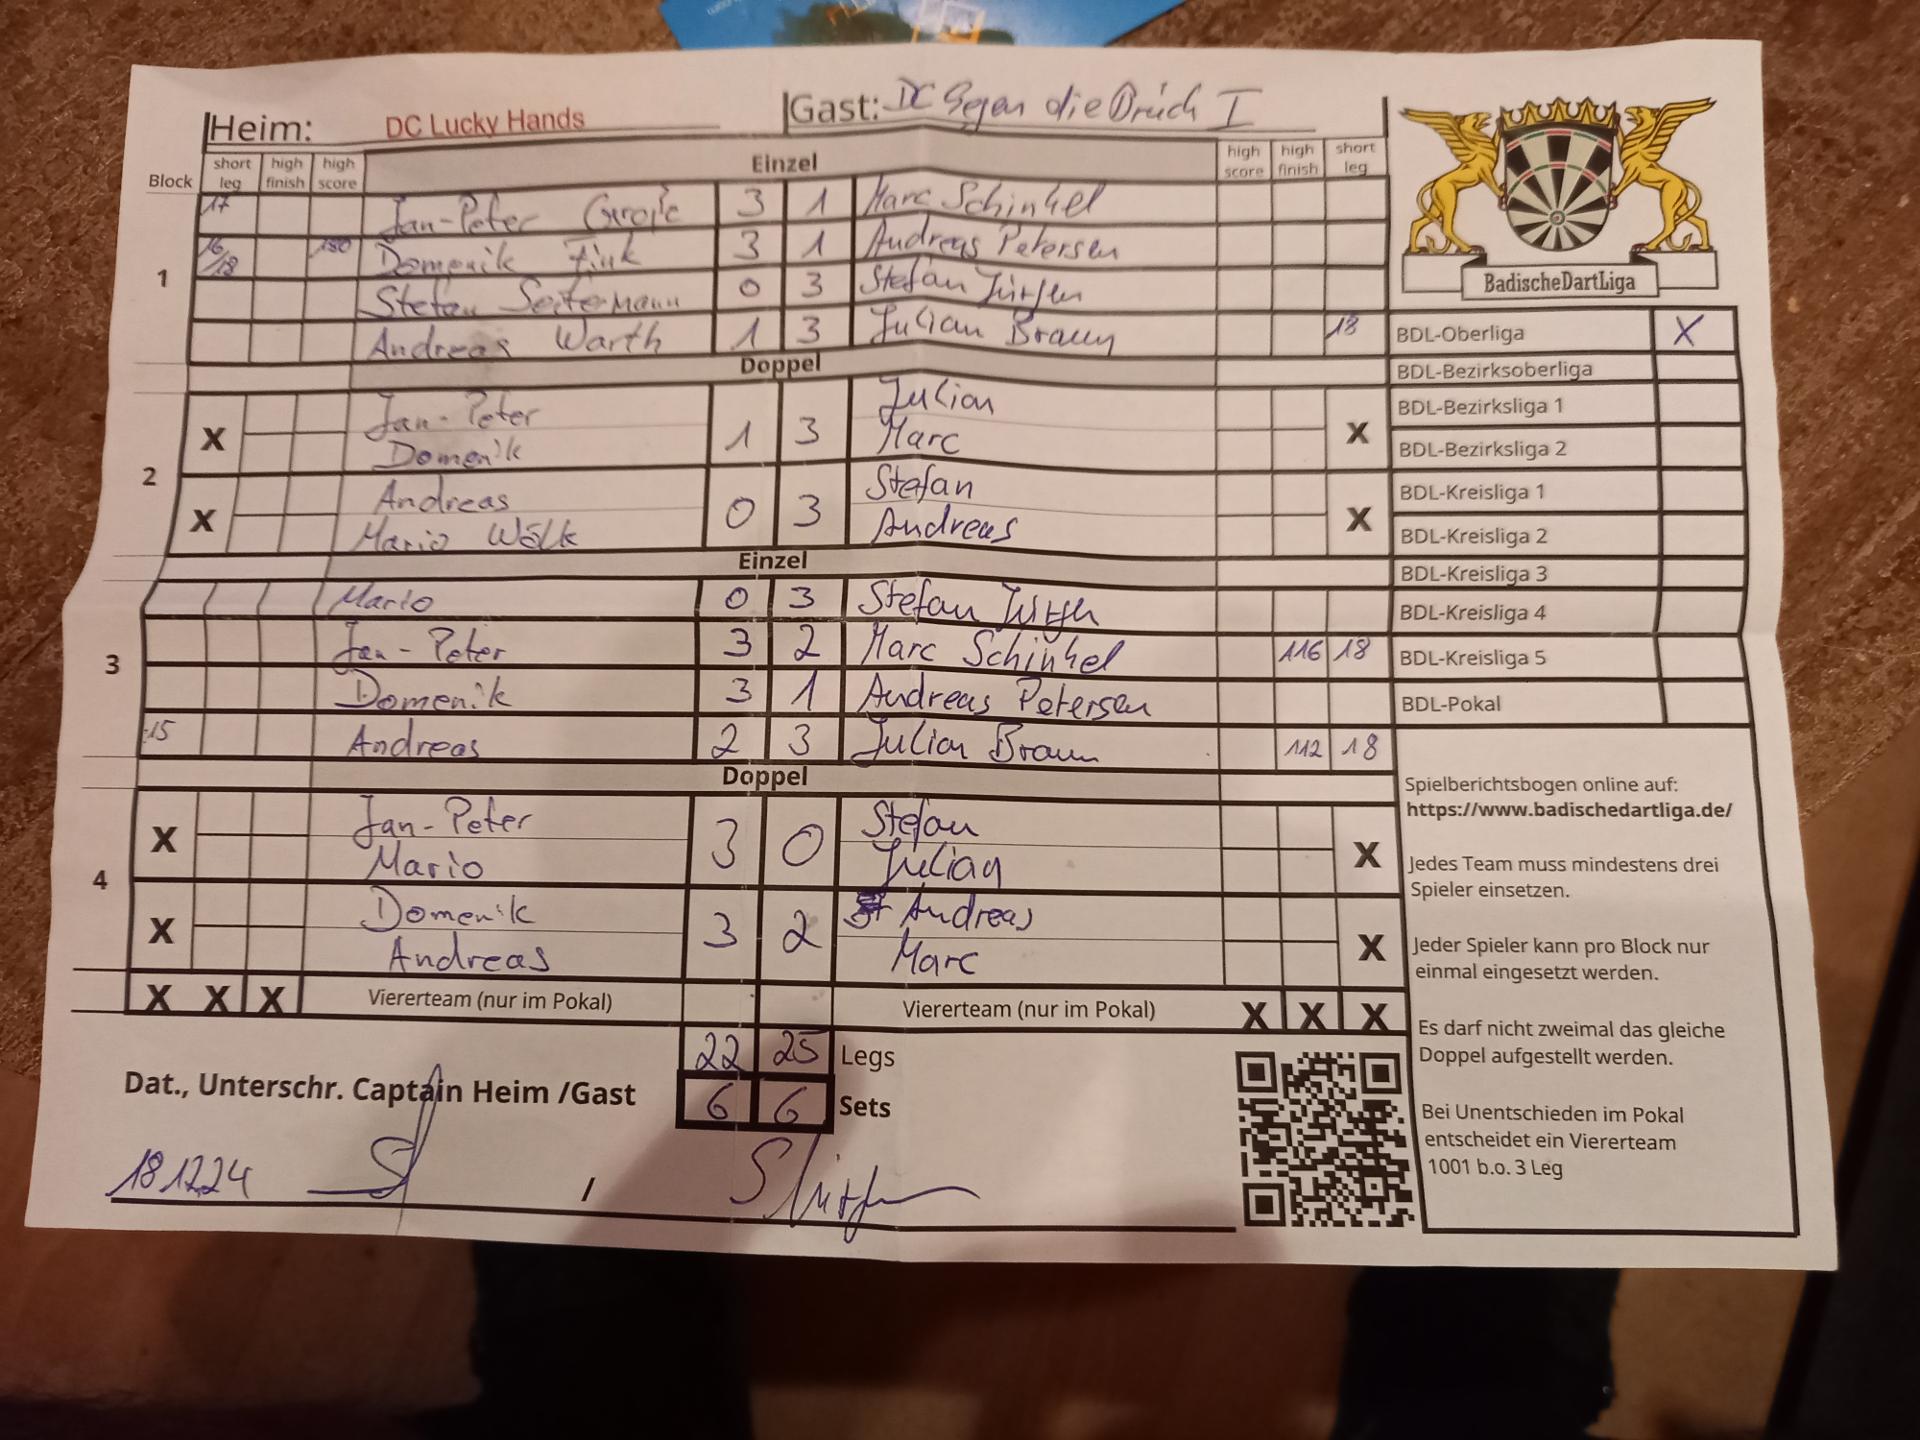 Heim: DC Lucky Hands Gast: DC Gegen die Drück I
Block short leg high finish high score Einzel high score high finish short leg
1
17 Jan-Peter 3 1 Marc Schinkel
16/18 180 Domenik Fink 3 1 Andreas Petersen
Stefan Seitermann 0 3 Stefan
Andreas Warth 1 3 Julian Braun 18
Doppel
2
X Jan-Peter 1 3 Julian X
Domenik Marc
X Andreas 0 3 Stefan X
Mario Wölk Andreas
Einzel
3
Mario 0 3 Stefan
Jan-Peter 3 2 Marc Schinkel 116 18
Domenik 3 1 Andreas Petersen
15 Andreas 2 3 Julian Braun 112 18
Doppel
4
X Jan-Peter 3 0 Stefan X
Mario Julian
X Domenik 3 2 Andreas X
Andreas Marc
X X X Viererteam (nur im Pokal) Viererteam (nur im Pokal) X X X
22 25 Legs
6 6 Sets
Dat., Unterschr. Captain Heim /Gast
18.12.24 /
BadischeDartLiga
BDL-Oberliga X
BDL-Bezirksoberliga
BDL-Bezirksliga 1
BDL-Bezirksliga 2
BDL-Kreisliga 1
BDL-Kreisliga 2
BDL-Kreisliga 3
BDL-Kreisliga 4
BDL-Kreisliga 5
BDL-Pokal
Spielberichtsbogen online auf:
https://www.badischedartliga.de/
Jedes Team muss mindestens drei
Spieler einsetzen.
Jeder Spieler kann pro Block nur
einmal eingesetzt werden.
Es darf nicht zweimal das gleiche
Doppel aufgestellt werden.
Bei Unentschieden im Pokal
entscheidet ein Viererteam
1001 b.o. 3 Leg